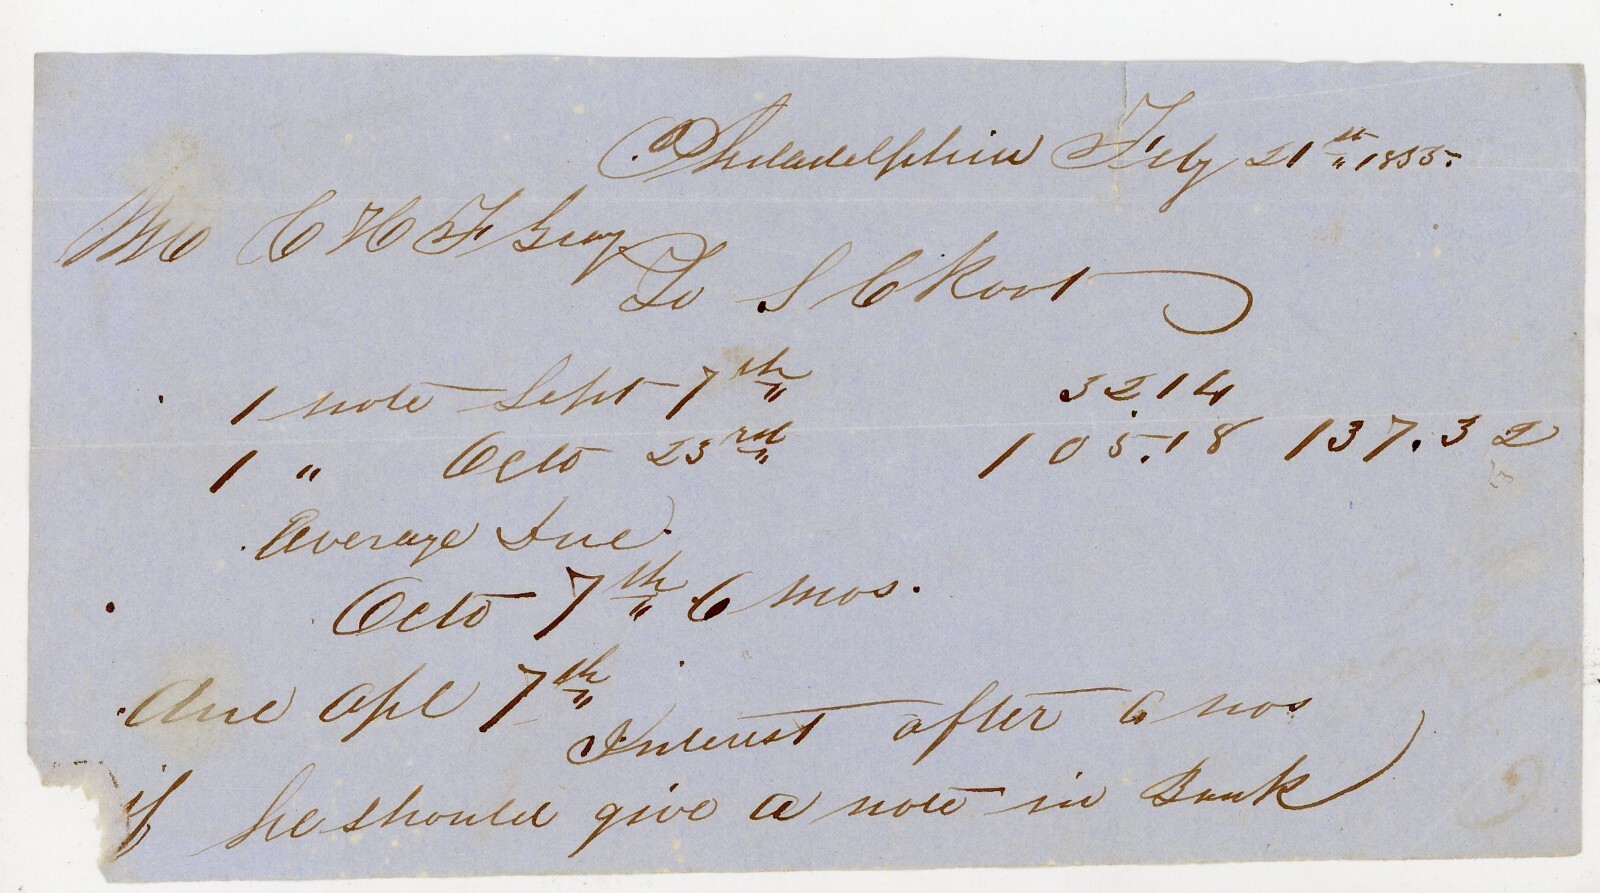 Philadelphia Feby 21st 1855.
C H F Gray
To S C Root
1 note Sept 7th 32.14
1 " Octo 23rd 105.18 137.32
Average Due
Octo 7th 6 mos.
Due Apl 7th
Interest after 6 mos
if he should give a note in Bank